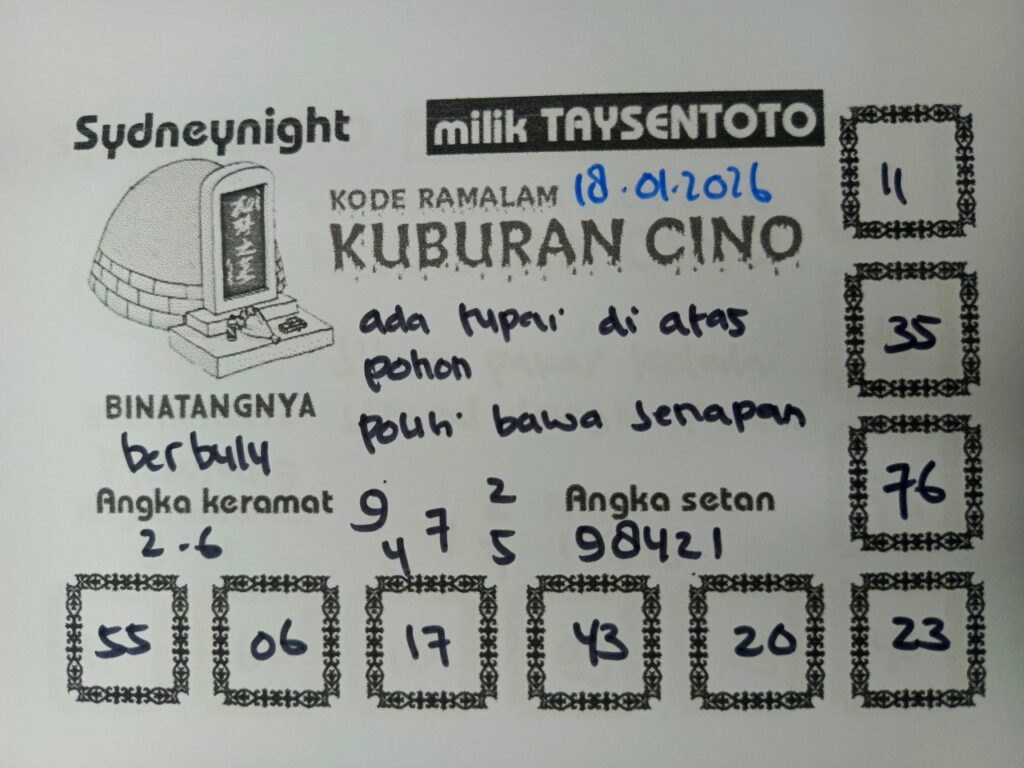 Sydneynight
milik TAYSENTOTO
KODE RAMALAM 18.01.2026
KUBURAN CINO
ada tupai di atas
pohon
polisi bawa senapan
BINATANGNYA
berbulu
Angka keramat
2.6
9 7 2
4 5
Angka setan
98421
11
35
76
55 06 17 43 20 23